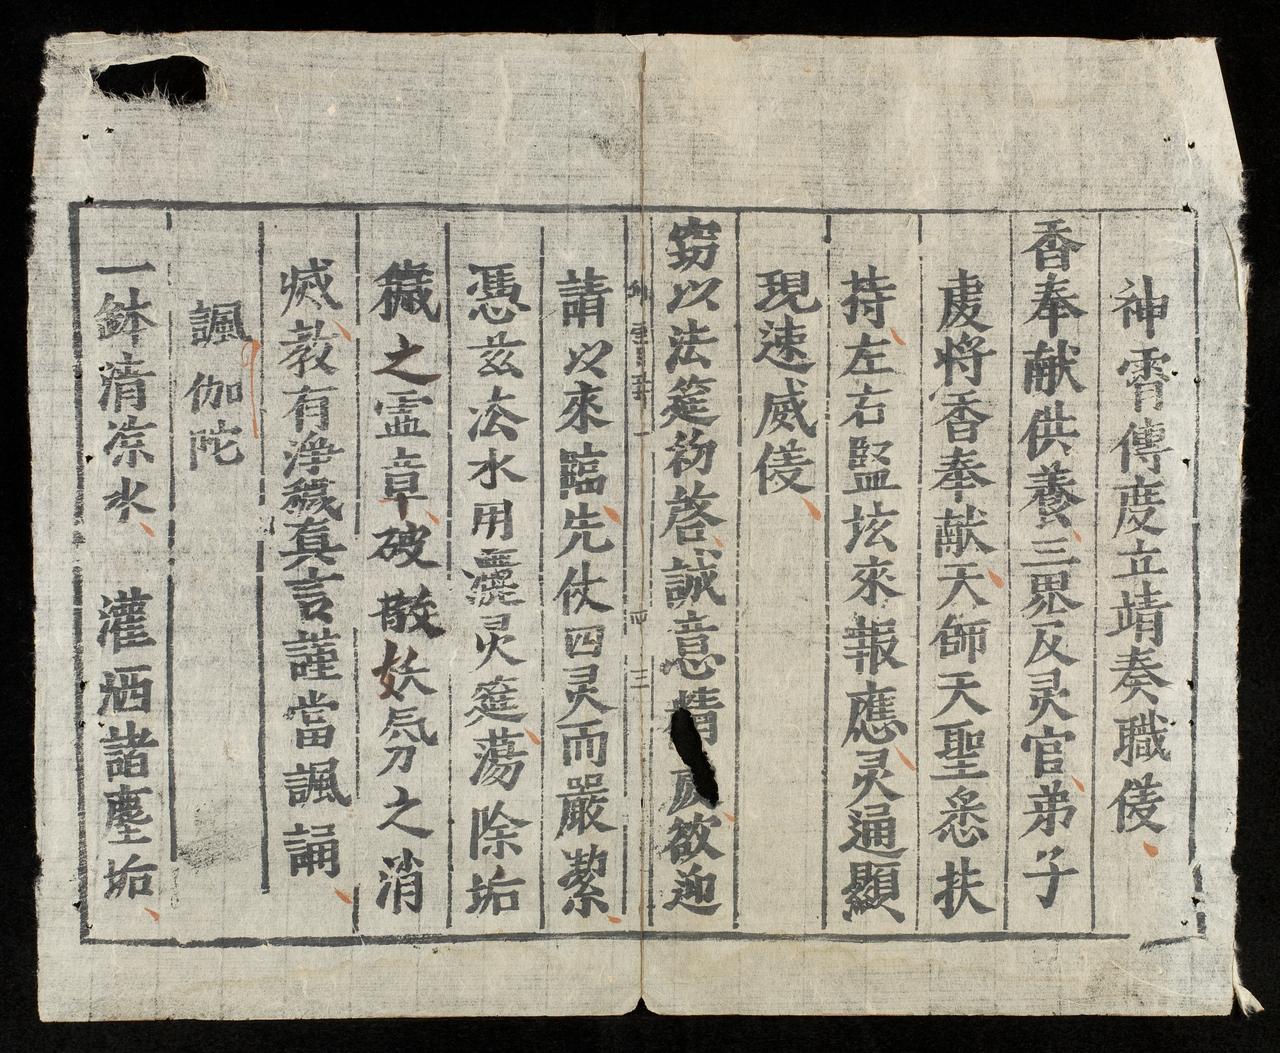 神霄傳度立靖奏職儀
香奉献供養三界及灵官弟子
虔將香奉献天師天聖悉扶
持左右監垓來報應灵通顯
現速威儀
窃以法筵初啓誠意精虔欲迎
三
請以來臨先仗四灵而嚴潔
憑兹法水用灑灵筵蕩除垢
穢之霊章破散妖氛之消
烕教有浄穢真言謹當諷誦
諷伽陀
一鉢清涼水 灌洒諸塵垢